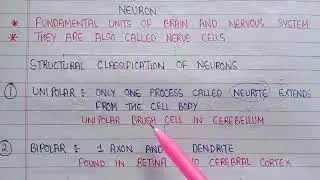 NEURON
* FUNDAMENTAL UNITS OF BRAIN AND NERVOUS SYSTEM
* THEY ARE ALSO CALLED NERVE CELLS
STRUCTURAL CLASSIFICATION OF NEURONS
1 UNIPOLAR : ONLY ONE PROCESS CALLED NEURITE EXTENDS
FROM THE CELL BODY
UNIPOLAR BRUSH CELL IN CEREBELLUM
2 BIPOLAR : 1 AXON AND DENDRITE
FOUND IN RETINA CEREBRAL CORTEX